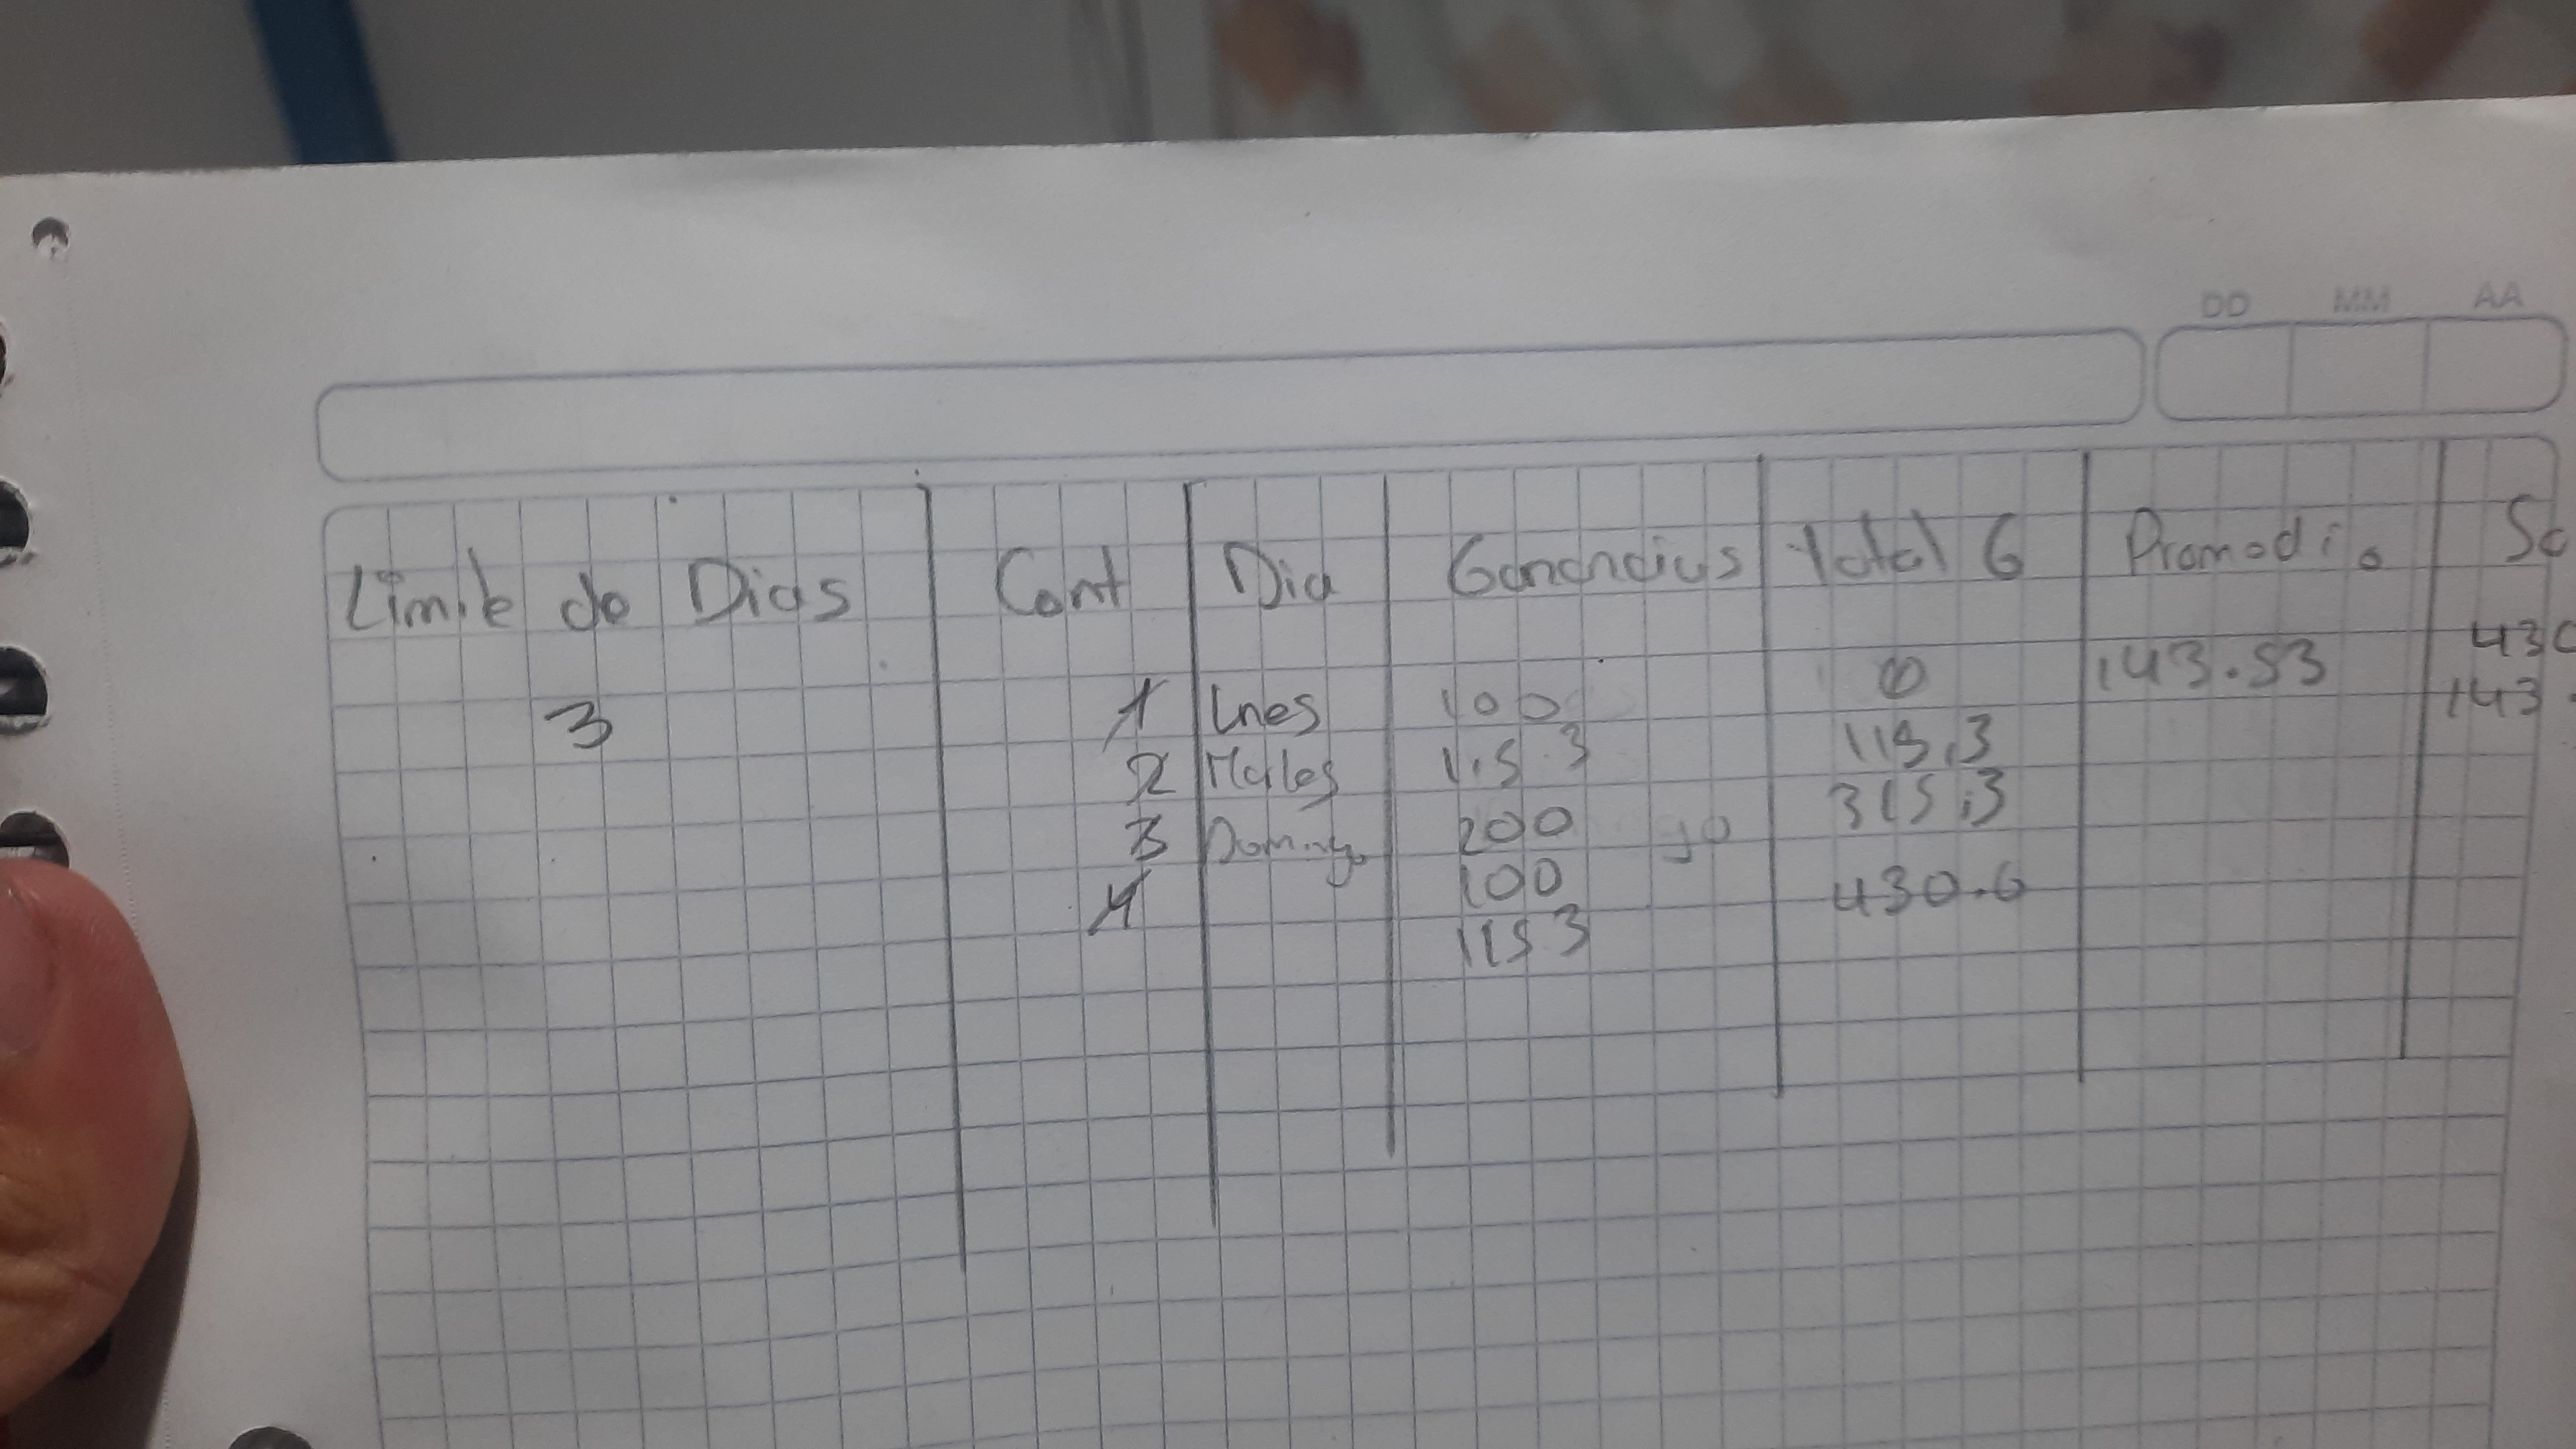 DD MM AA
Limite de Dias Cont Dia Ganancias total G Promedio Sa
430
3 1 Lnes 100 0 143.53 143
2 Martes 115.3 115.3
3 Domingo 200 315.3
4 100 430.6
115.3